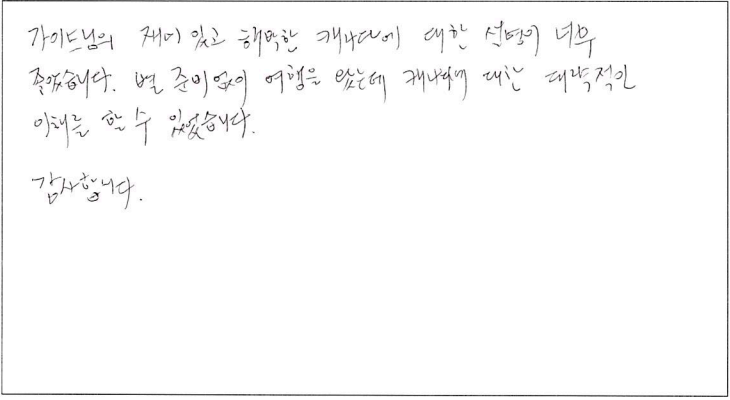 가이드님의 재미 있고 해박한 캐나다에 대한 설명이 너무
좋았습니다. 별 준비 없이 여행을 왔는데 캐나다에 대한 대략적인
이해를 할 수 있었습니다.
감사합니다.